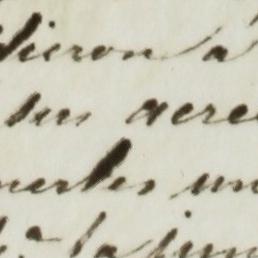 dieron á
sus acree
nerles un
á la jun